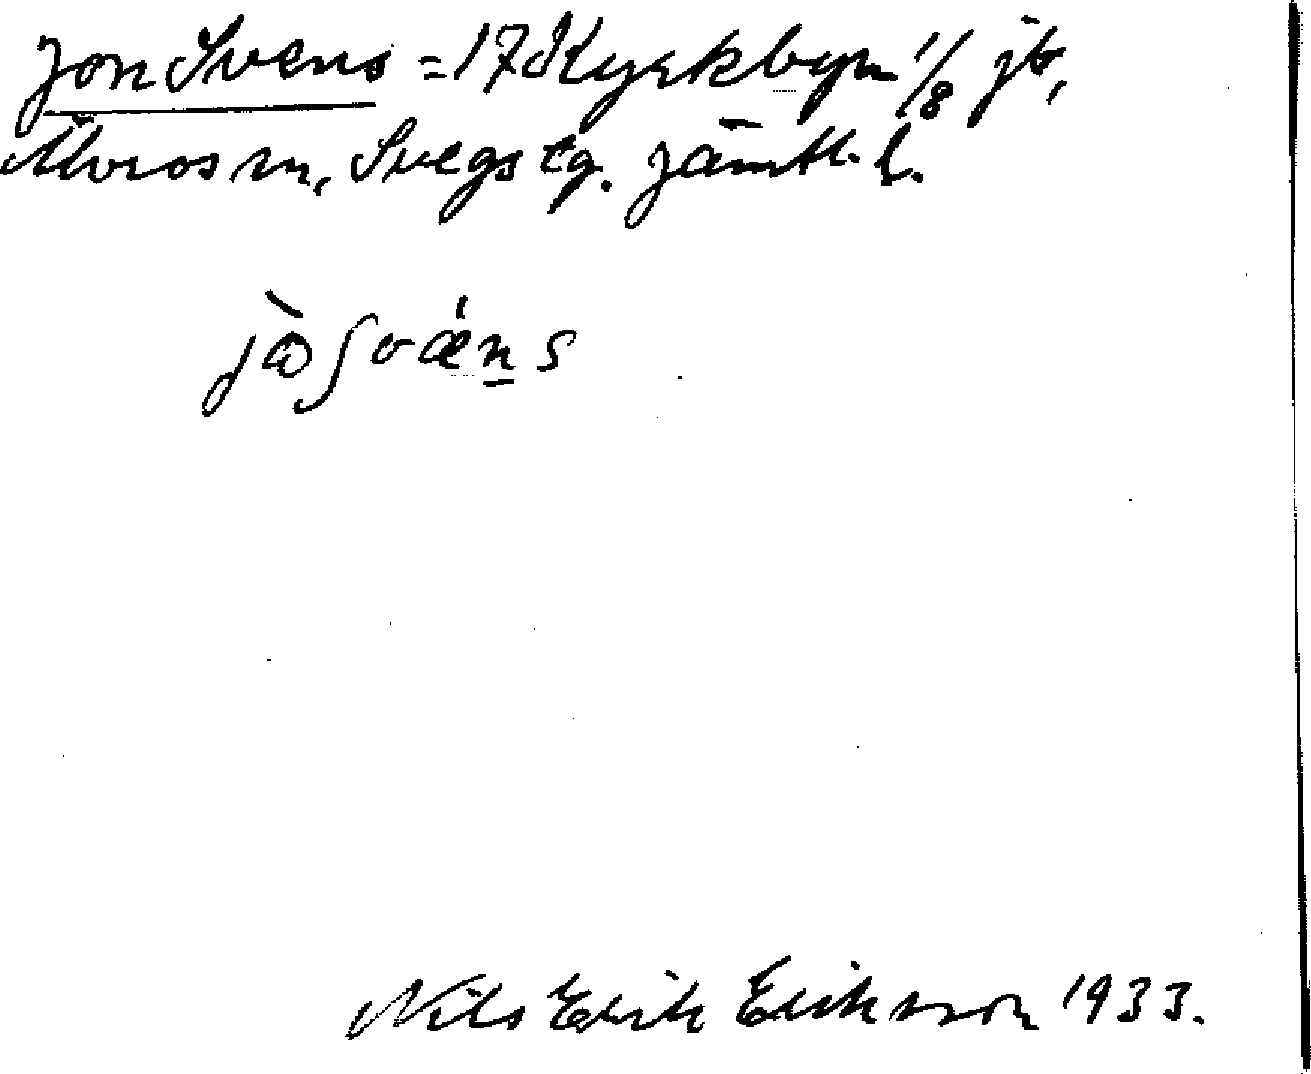 Jon Svens = 17 Kyrkbyn 1/8 jb,
Älvros sn, Svegs tg. Jämtl. l.
Nils Erik Eriksson 1933.